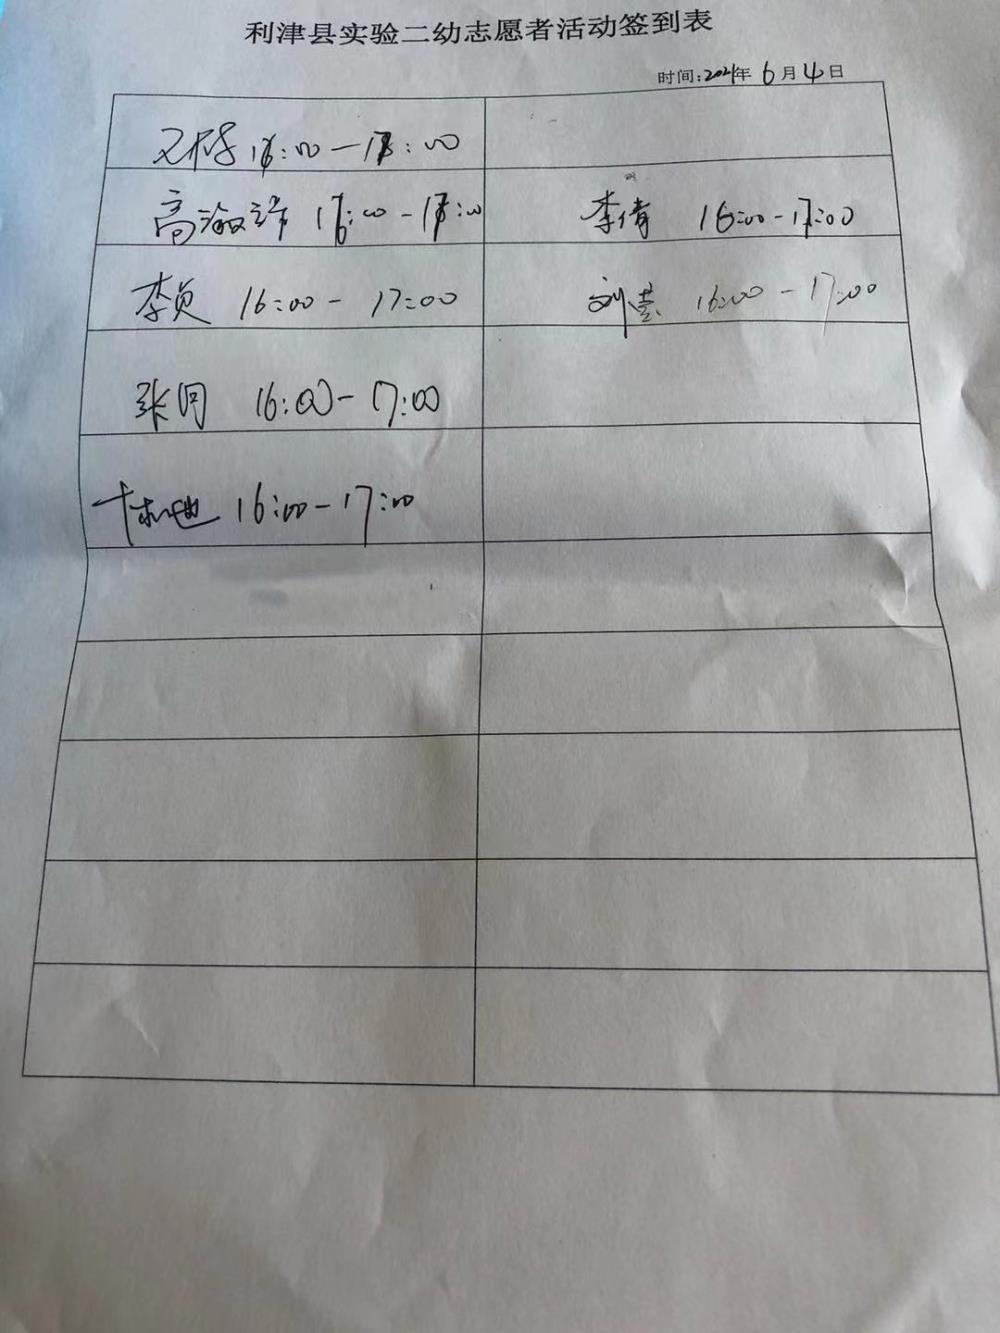 利津县实验二幼志愿者活动签到表
时间:2021年 6月4日
16:00-17:00
高淑萍 16:00-17:00
李倩 16:00-17:00
李贞 16:00-17:00
刘芸 16:00-17:00
张同 16:00-17:00
16:00-17:00